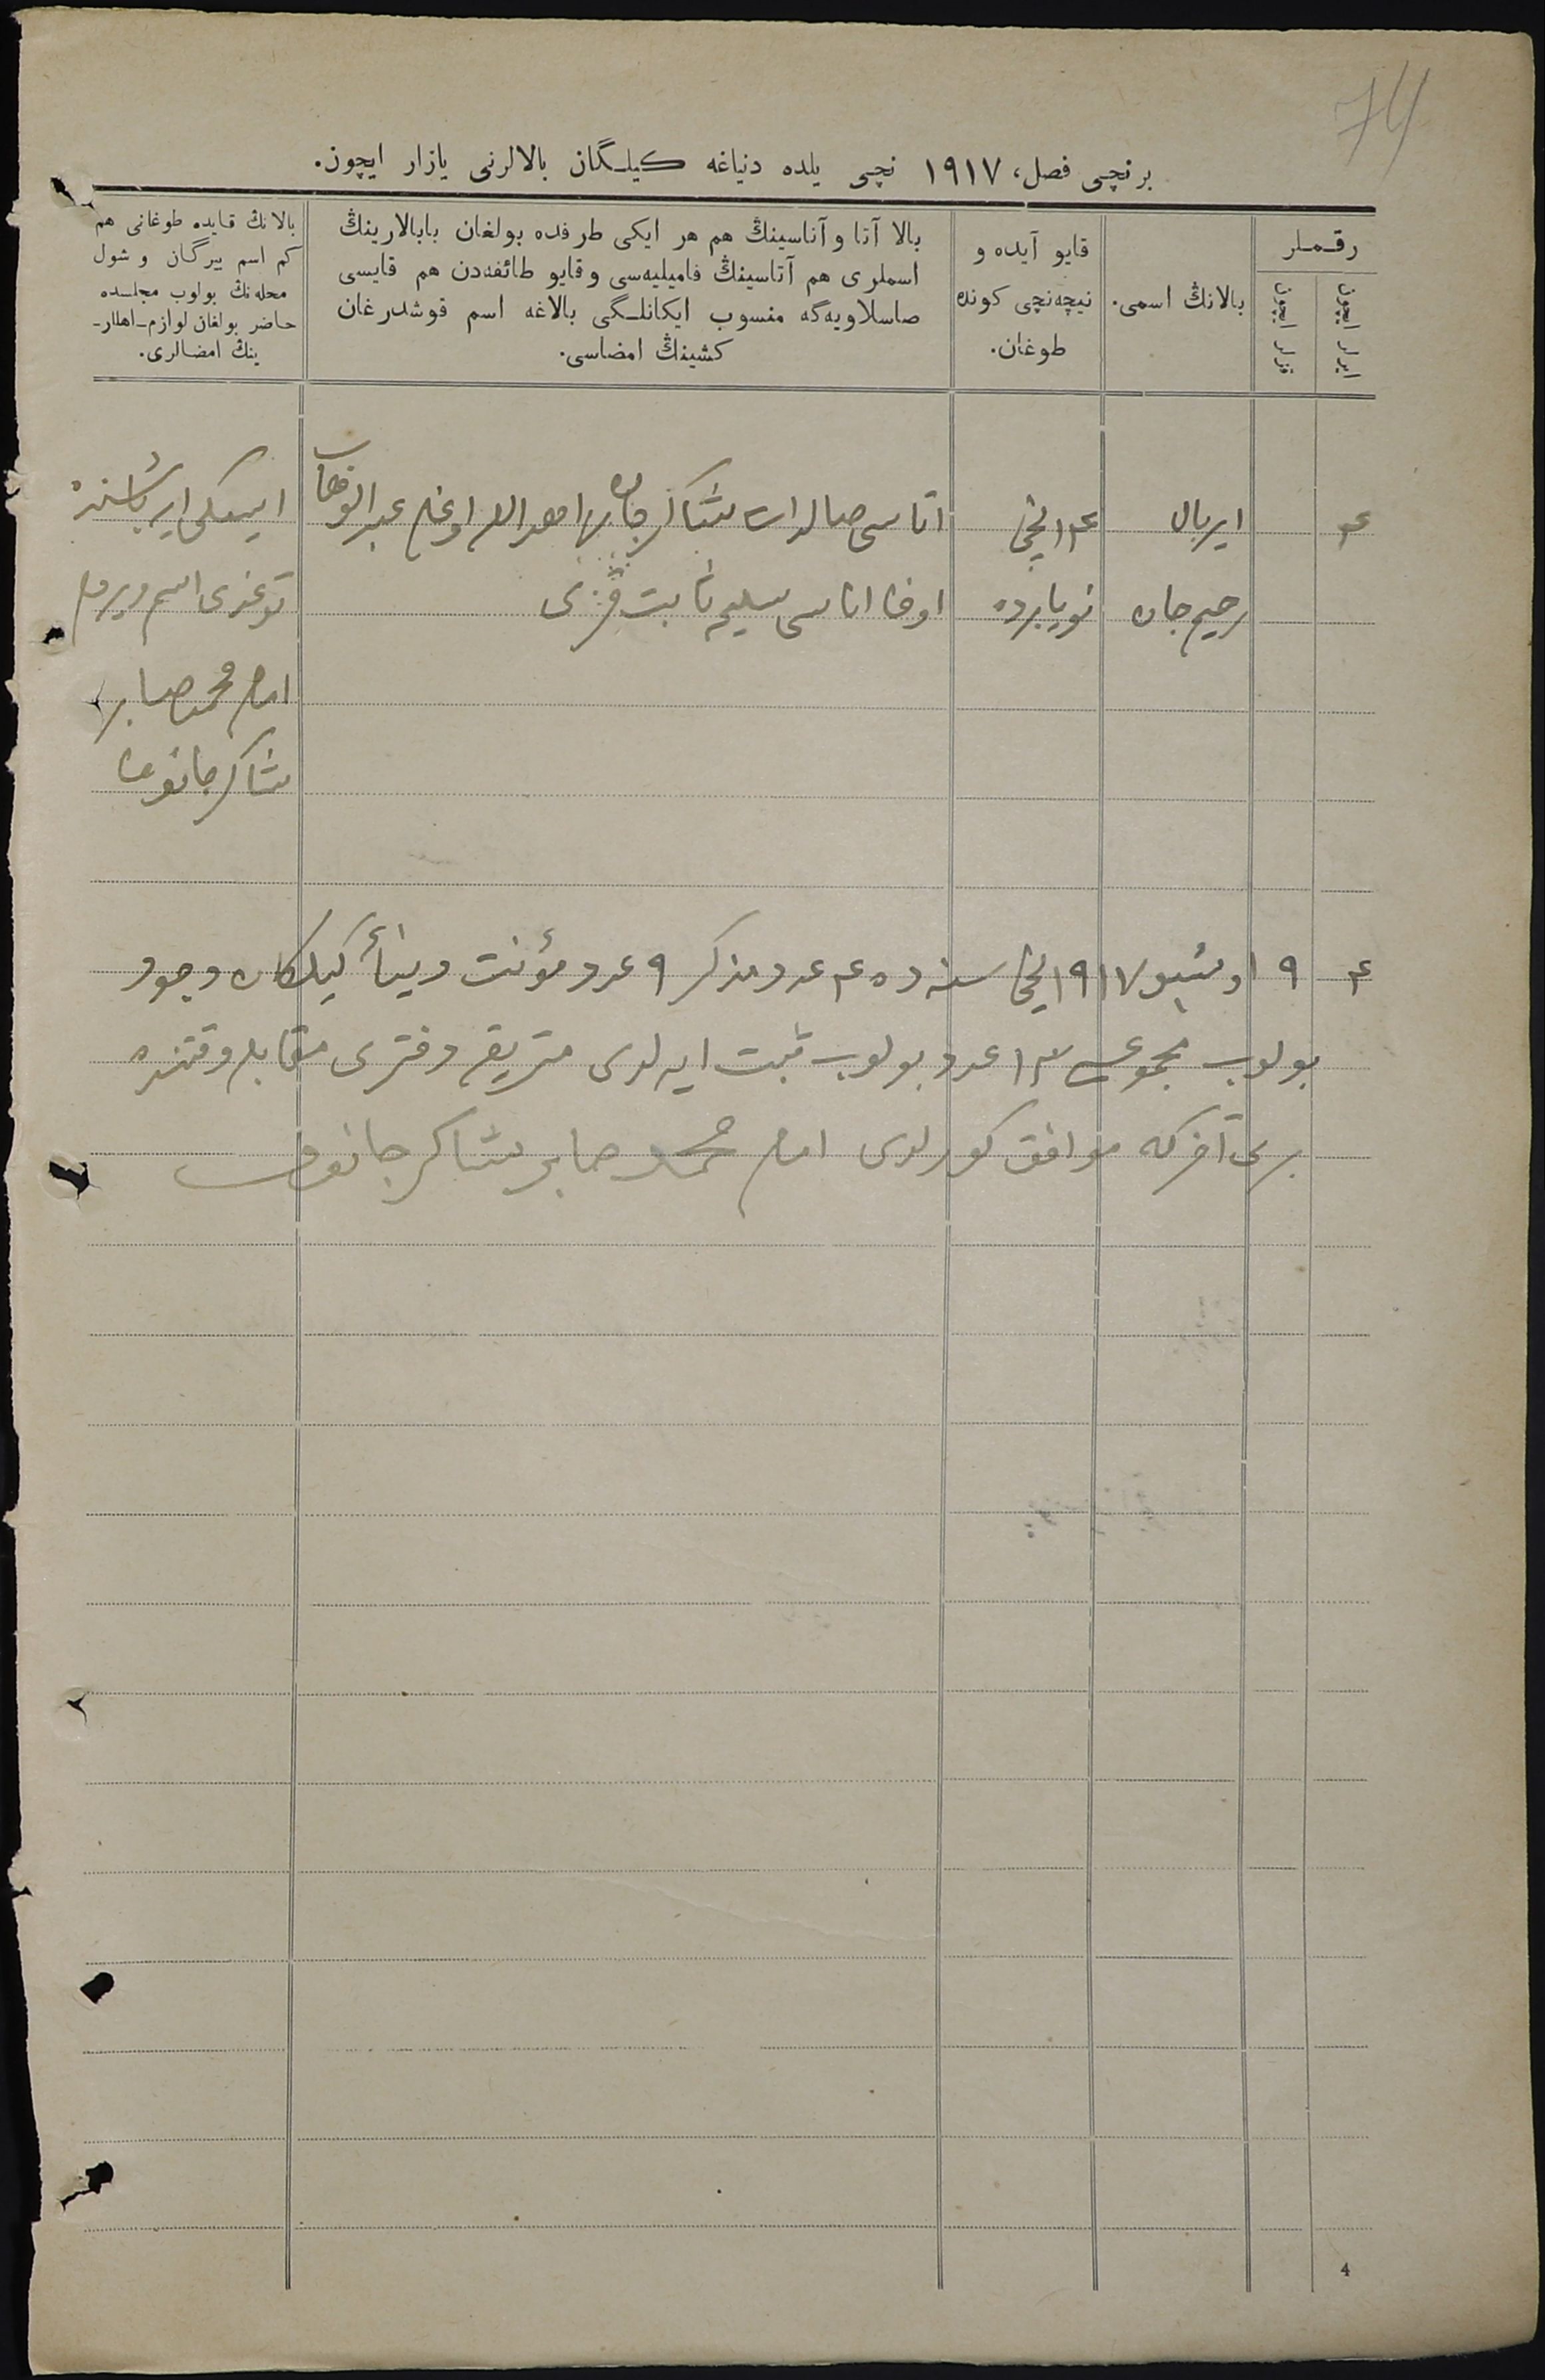 74
برنچی فصل، ۱۹۱۷ نچی یلده دنیاغه کیلـگان بالالرنی یازار ایچون.
رقـمـلر
ایرلر ایچون
قزلر ایچون
بالانڭ اسمی.
قایو آیده و
نیچه‌نچی کونده
طوغان.
بالا آتا و آناسینڭ هم هر ایکی طرفده بولغان بابالارینڭ
اسملری هم آتاسینڭ فامیلیه‌سی و قایو طائفه‌دن هم قایسی
صاسلاویه‌گه منسوب ایکانلـگی بالاغه اسم قوشدرغان
کشینڭ امضاسی.
بالانڭ قایده طوغانی هم
کم اسم بیرگان و شول
محله‌نڭ بولوب مجلسده
حاضر بولغان لوازم-اهللر-
ینڭ امضالری.
۴
ایربال
رحیم جان
۱۴ نچی
نویابرده
اتاسی شاکرجان اوغلی عبدالوهاب
اوف اناسی سلیمه ثابت قزی
ایسکی ایرباشنده
توغدی اسم ویردم
امام محمد صابر
شاکرجانوف
۴ ۹ اوشبو ۱۹۱۷ نچی سنه ده ۴ عدد مذکر ۹ عدد مؤنث دنیاغه کیلکان وجود
بولوب مجموعی ۱۳ عدد بولوب ثبت ایدلدی متریقه دفتری مقابله وقتنده
بری آخرکه موافق کورلدی امام محمد صابر شاکرجانوف
4